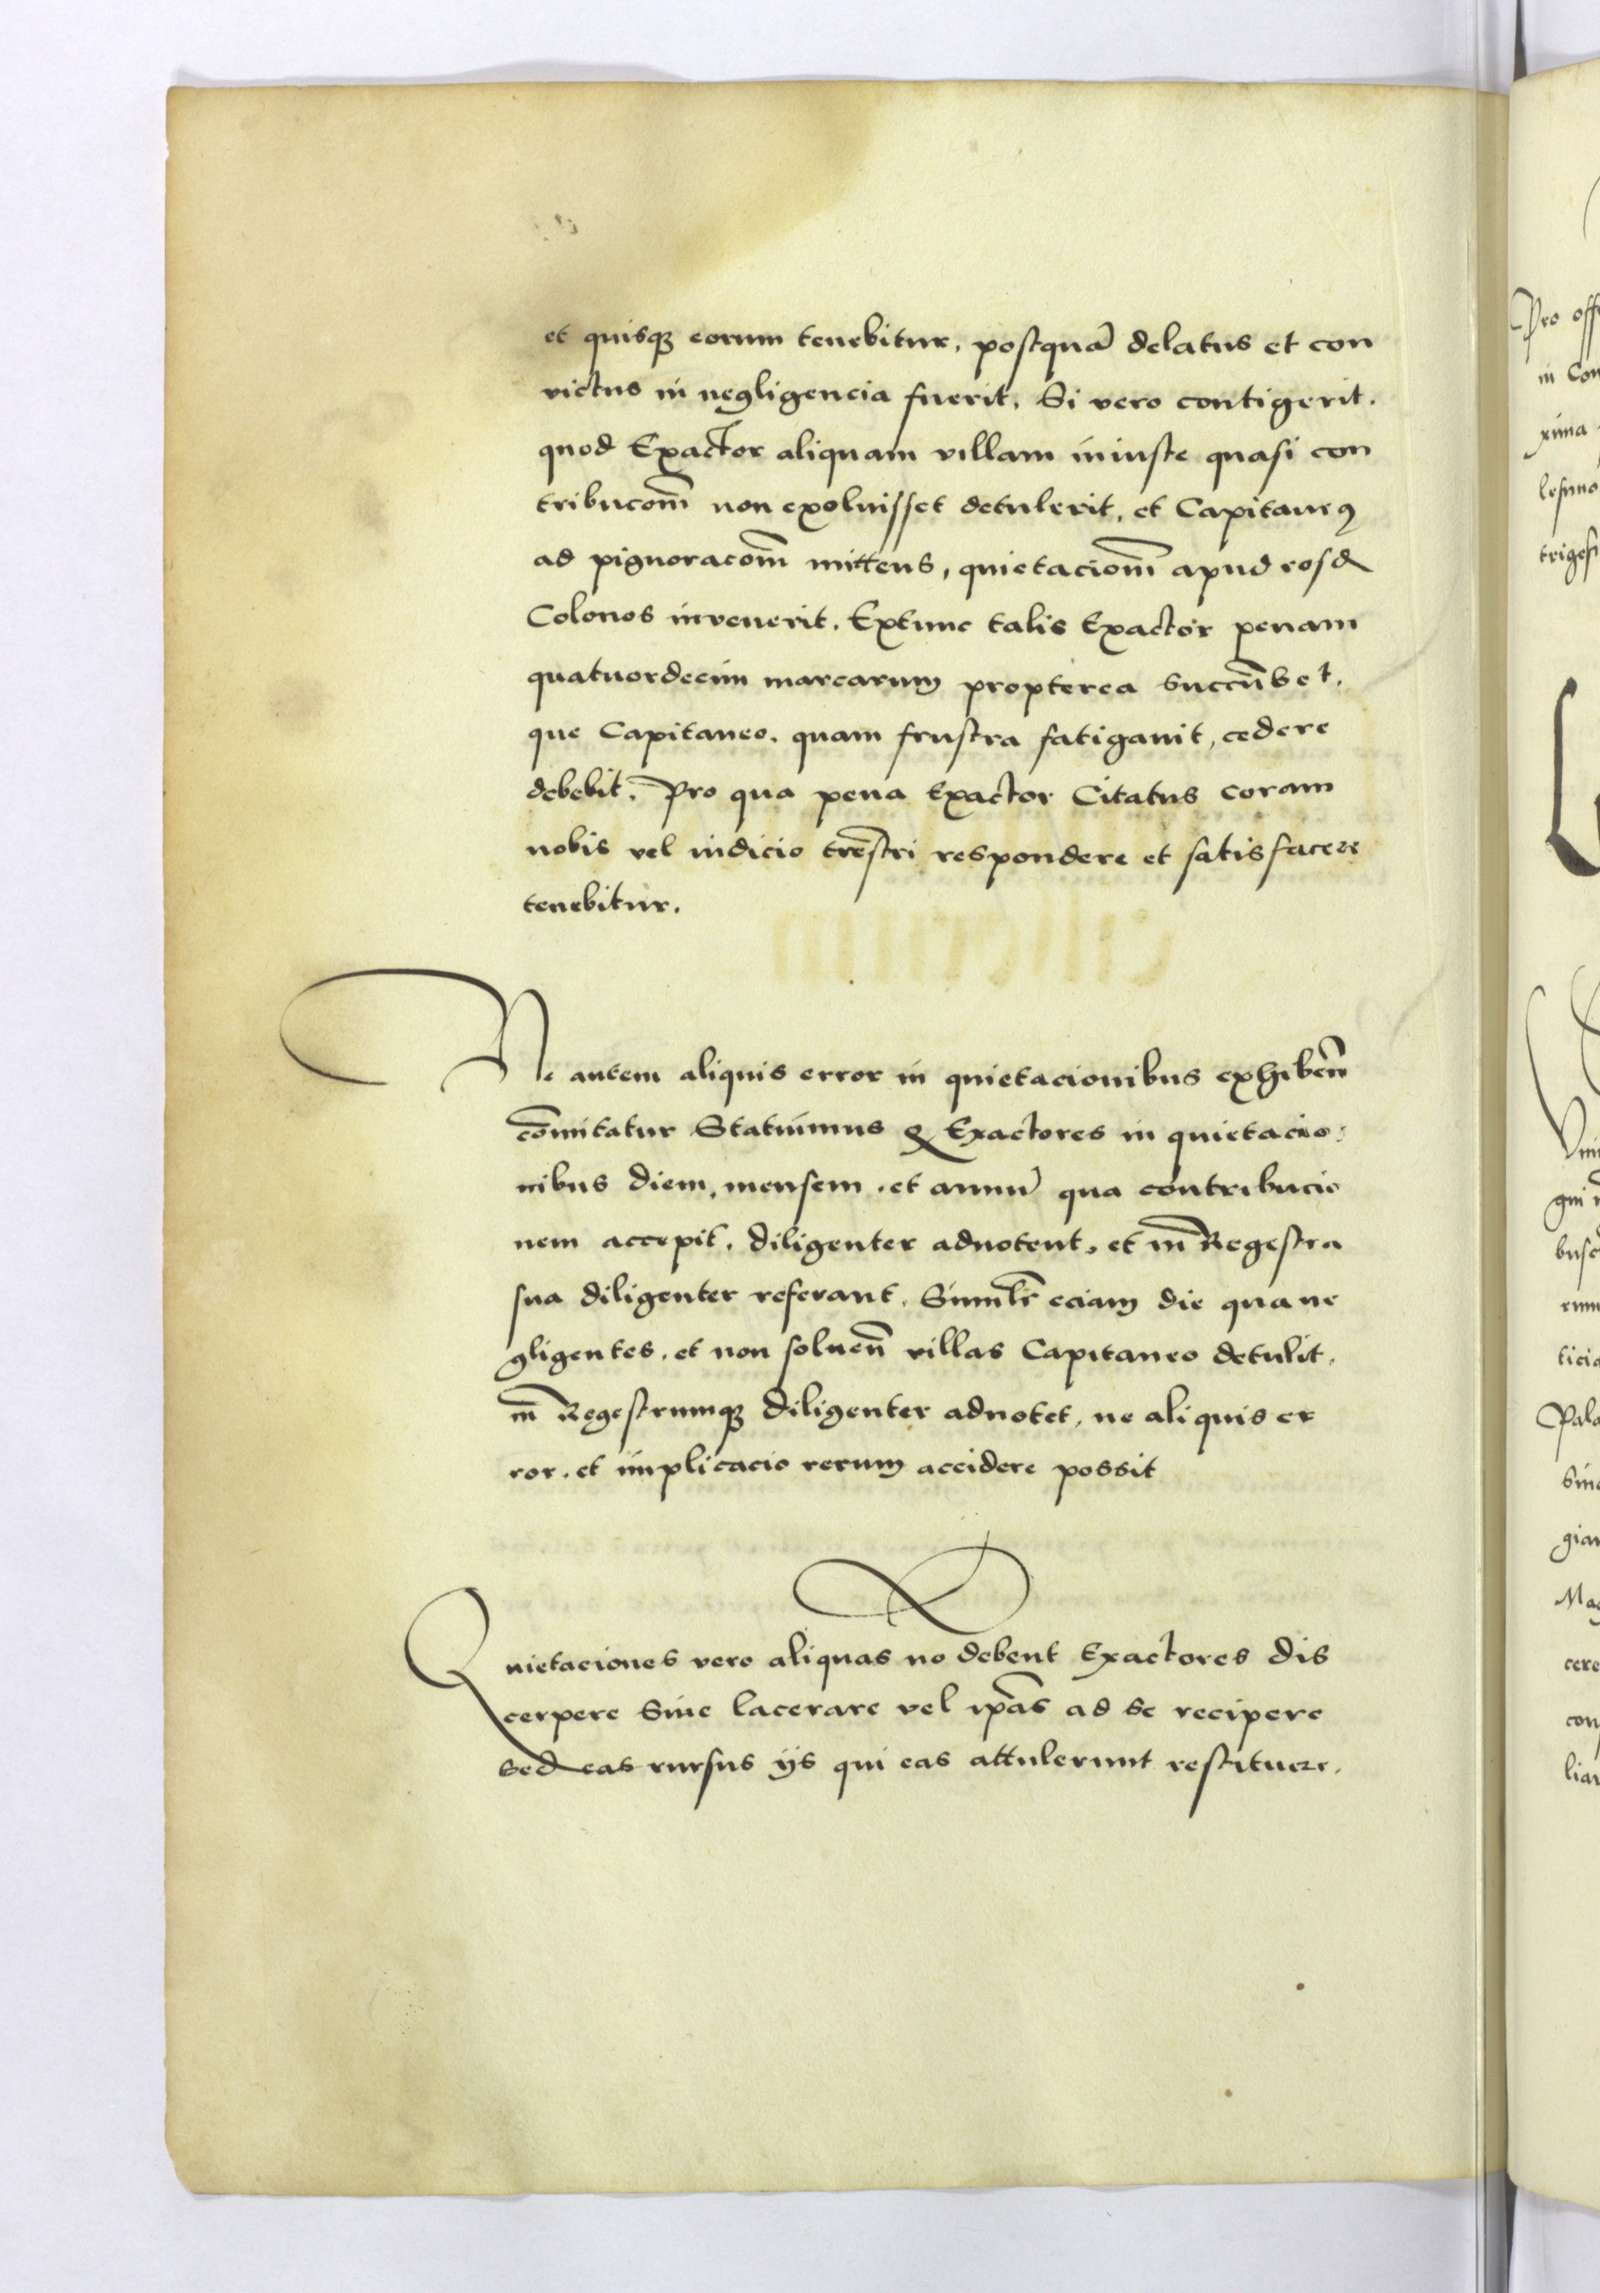 et quisqꝫ eorum tenebitur, postquā delatus et con
victus in negligencia fuerit. Si vero contigerit.
quod Exactor aliquam villam iniuste quasi con
tribucom̄ non exoluisset detulerit, et Capitaneꝯ
ad pignoracom̄ mittens, quietaciom̄ apud eosd
Colonos invenerit. Extunc talis Exactor penam
quatuordecim marcarum propterea succūbet.
que Capitaneo. quem frustra fatigauit, cedere
debebit. Pro qua pena Exactor Citatus coram
nobis vel iudicio trēstri respondere et satisfacere
tenebitur.
Ne autem aliquis error in quietacionibus exhibēn
cōmitatur Statuimus ꝙ Exactores in quietacio:
nibus diem, mensem. et annū qua contribucio
nem accepit. diligenter adnotent. et in̄ Regestra
sua diligenter referant. Similr̄ eciam die qua ne
gligentes. et non soluen̄ villas Capitaneo detulit.
in̄ Regestrumqꝫ diligenter adnotet, ne aliquis er
ror. et implicacio rerum accidere possit
Quietaciones vero aliquas no debent Exactores dis
cerpere Siue lacerare vel ip̄as ad se recipere
sed eas rursus ijs qui eas attulerunt restituere.
Pro off
in Con
xima
trigesi
Pala
gian
Mag
cere
con
lian